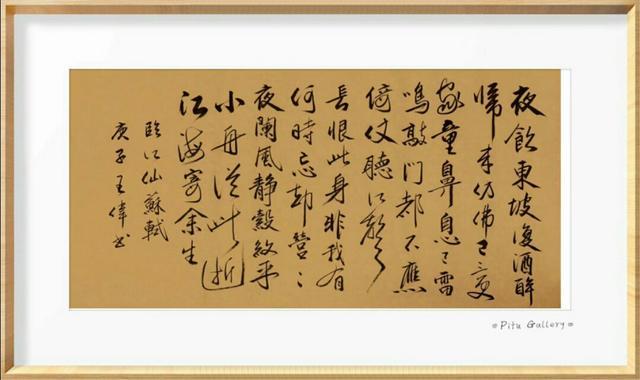 夜飲東坡復酒醉
歸来仿佛已三更
家童鼻息已雷
鳴敲門都不應
倚仗聽江聲
長恨此身非我有
何時忘却營々
夜闌風静縠紋平
小舟從此逝
江海寄余生
臨江仙蘇軾
庚子王偉书
Pitu Gallery